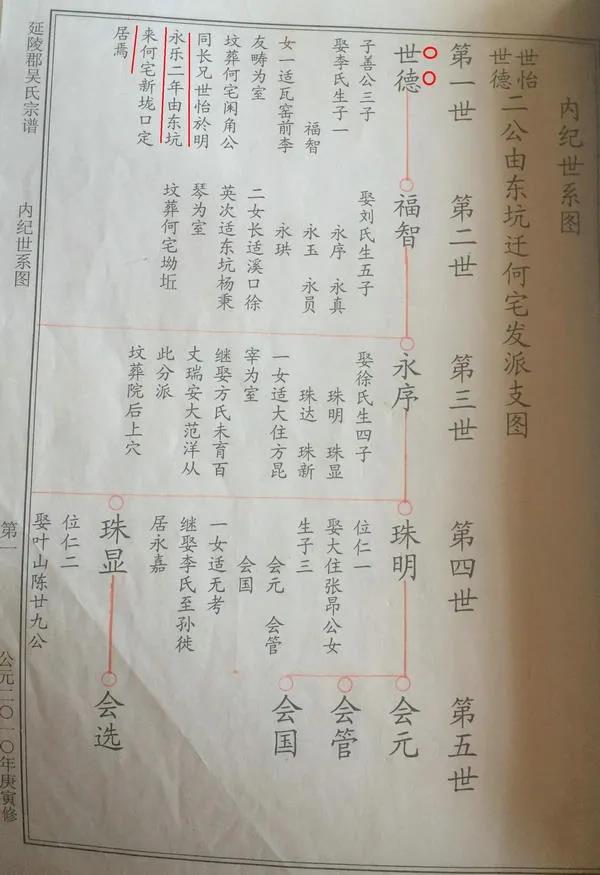 内纪世系图
世怡
世德
二公由东坑迁何宅发派支图
第一世
第二世
第三世
第四世
第五世
世德
子善公三子
娶李氏生子一
福智
女一适瓦窑前李
友畴为室
坟葬何宅闲角公
同长兄世怡於明
永乐二年由东坑
来何宅新垅口定
居焉
福智
娶刘氏生五子
永序 永真
永玉 永员
永珙
二女长适溪口徐
英次适东坑杨秉
琴为室
坟葬何宅坳坵
永序
娶徐氏生四子
珠明 珠显
珠达 珠新
一女适大住方昆
宰为室
继娶方氏未育百
丈瑞安大范洋从
此分派
坟葬院后上穴
珠明
位仁一
娶大住张昂公女
生子三
会元 会管
会国
一女适无考
继娶李氏至孙徙
居永嘉
珠显
位仁二
娶叶山陈廿九公
会元
会管
会国
会选
延陵郡吴氏宗谱
内纪世系图
第一
公元二〇一〇年庚寅修